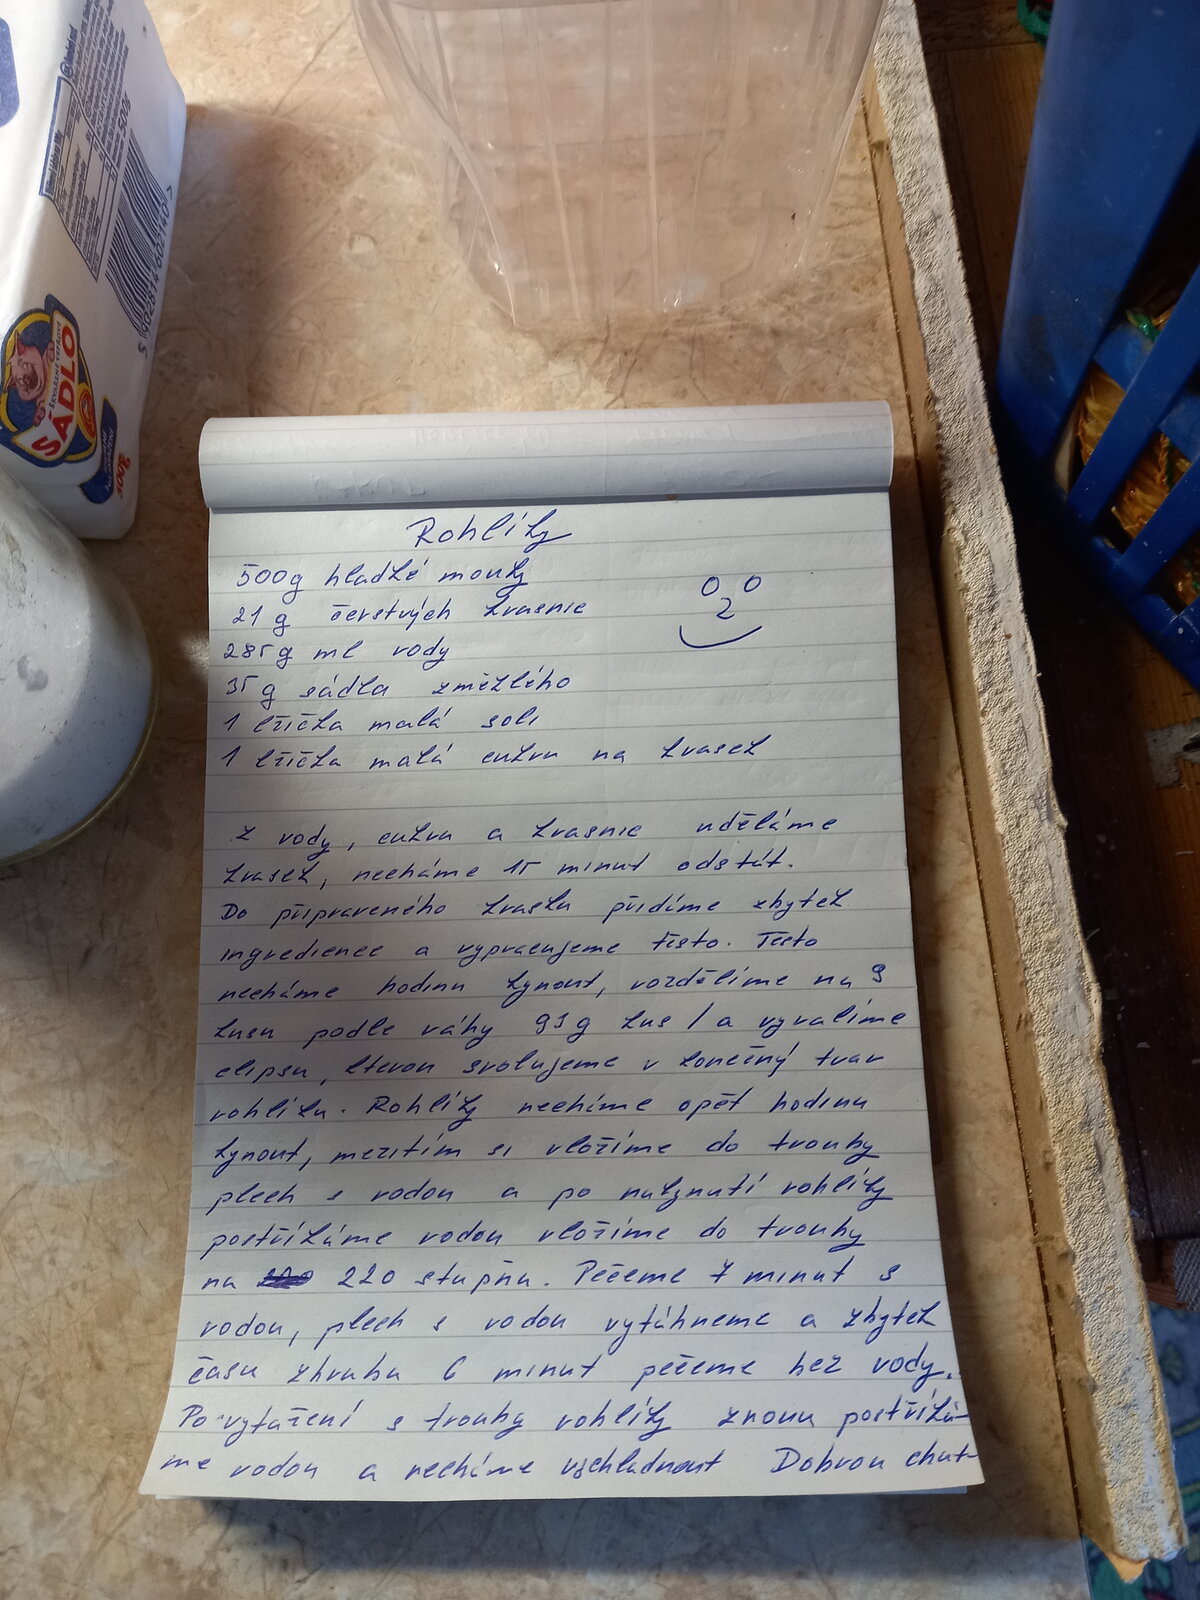 ŠKVAŘENÉ VEPŘOVÉ
SÁDLO
500g
5 902814 602140 >
Rohlíky
500g hladké mouky
21 g čerstvých kvasnic
285g ml vody
35 g sádla změklého
1 lžička malá soli
1 lžička malá cukru na kvasek
z vody, cukru a kvasnic uděláme
kvasek, necháme 15 minut odstát.
Do připraveného kvasku přidáme zbytek
ingredience a vypracujeme těsto. Těsto
necháme hodinu kynout, rozdělíme na 9
kusu podle váhy 93g kus / a vyvalíme
elipsu, kterou srolujeme v konečný tvar
rohlíku. Rohlíky necháme opět hodinu
kynout, mezitím si vložíme do trouby
plech s vodou a po nakynutí rohlíky
postříkáme vodou vložíme do trouby
na 220 stupňu. Pečeme 7 minut s
vodou, plech s vodou vytáhneme a zbytek
času zhruba 6 minut pečeme bez vody.
Po vytažení s trouby rohlíky znovu postříká-
me vodou a necháme vychladnout Dobrou chuť